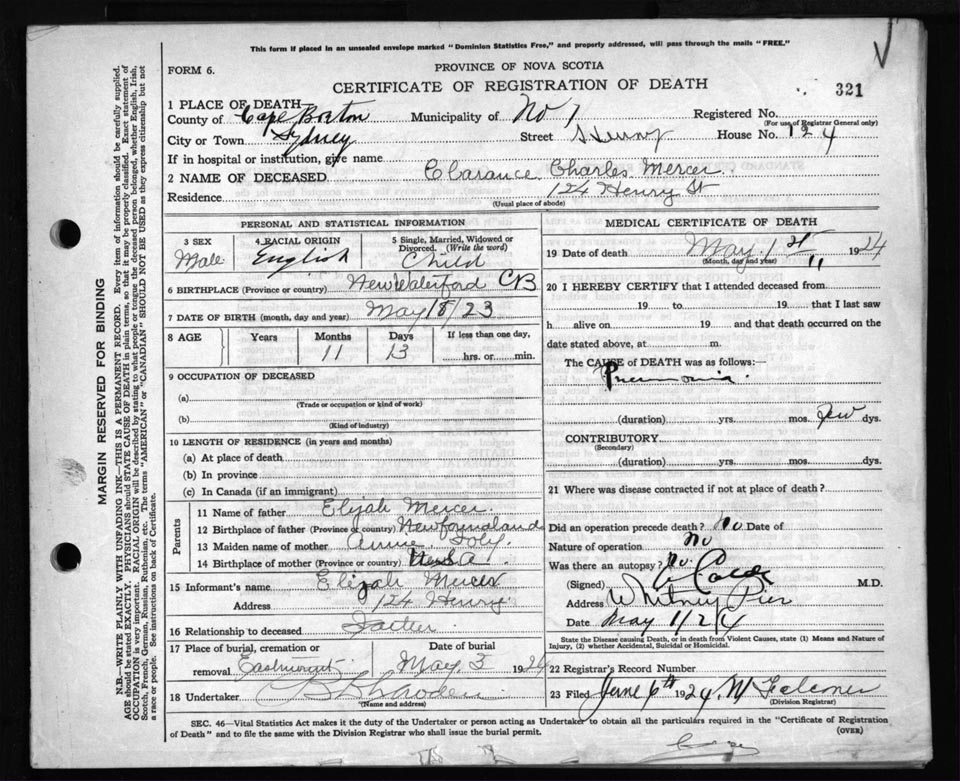 This form if placed in an unsealed envelope marked "Dominion Statistics Free," and properly addressed, will pass through the mails "FREE."
FORM 6.
PROVINCE OF NOVA SCOTIA
CERTIFICATE OF REGISTRATION OF DEATH
321
1 PLACE OF DEATH—
County of Cape Breton Municipality of No 1 Registered No.
(For use of Registrar General only)
City or Town Sydney Street Henry House No. 124
If in hospital or institution, give name
2 NAME OF DECEASED Clarance Charles Mercer
Residence 124 Henry St
(Usual place of abode)
PERSONAL AND STATISTICAL INFORMATION
3 SEX Male
4 RACIAL ORIGIN English
5 Single, Married, Widowed or Divorced. (Write the word) Child
6 BIRTHPLACE (Province or country) New Waterford CB
7 DATE OF BIRTH (month, day and year) May 18/23
8 AGE Years Months 11 Days 13 If less than one day, hrs. or min.
9 OCCUPATION OF DECEASED
(a)
(Trade or occupation or kind of work)
(b)
(Kind of industry)
10 LENGTH OF RESIDENCE (in years and months)
(a) At place of death
(b) In province
(c) In Canada (if an immigrant)
Parents
11 Name of father Elijah Mercer
12 Birthplace of father (Province or country) Newfoundland
13 Maiden name of mother Annie
14 Birthplace of mother (Province or country)
15 Informant's name Elijah Mercer
Address 124 Henry
16 Relationship to deceased Father
17 Place of burial, cremation or removal Eastmount
Date of burial May 3 1924
18 Undertaker
(Name and address)
MEDICAL CERTIFICATE OF DEATH
19 Date of death May 1st 1924
(Month, day and year)
20 I HEREBY CERTIFY that I attended deceased from
19 to 19 that I last saw
h alive on 19 and that death occurred on the
date stated above, at m.
The CAUSE of DEATH was as follows:—
Pneumonia
(duration) yrs. mos. few dys.
CONTRIBUTORY
(Secondary)
(duration) yrs. mos. dys.
21 Where was disease contracted if not at place of death?
Did an operation precede death? No Date of
Nature of operation No
Was there an autopsy? No
(Signed) M.D.
Address Whitney Pier
Date May 1/24
State the Disease causing Death, or in death from Violent Causes, state (1) Means and Nature of Injury, (2) whether Accidental, Suicidal or Homicidal.
22 Registrar's Record Number
23 Filed June 6th 1924 W Falconer
(Division Registrar)
SEC. 46—Vital Statistics Act makes it the duty of the Undertaker or person acting as Undertaker to obtain all the particulars required in the "Certificate of Registration
of Death" and to file the same with the Division Registrar who shall issue the burial permit.
(OVER)
MARGIN RESERVED FOR BINDING
N.B.—WRITE PLAINLY WITH UNFADING INK—THIS IS A PERMANENT RECORD. Every item of information should be carefully supplied.
AGE should be stated EXACTLY. PHYSICIANS should STATE CAUSE OF DEATH in plain terms, so that it may be properly classified. Exact statement of
OCCUPATION is very important. RACIAL ORIGIN will be described by stating to what people or tongue the deceased person belonged, whether English, Irish,
Scotch, French, German, Russian, Ruthenian, etc. The terms "AMERICAN" or "CANADIAN" SHOULD NOT BE USED as they express citizenship but not
a race or people. See instructions on back of Certificate.